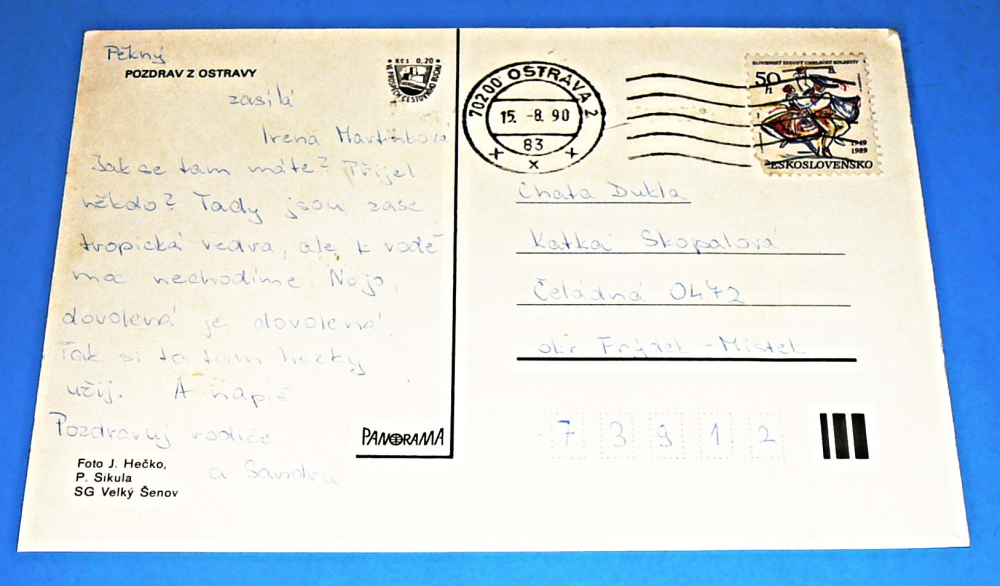 Pěkný
POZDRAV Z OSTRAVY
zasílá
Irena Martínková
Jak se tam máte? Přijel
někdo? Tady jsou zase
tropická vedra, ale k vodě
moc nechodíme. Nojo,
dovolená je dovolená.
Tak si to tam hezky
užij. A napiš
Pozdravuj rodiče
a Sandru.
Foto J. Hečko,
P. Sikula
SG Velký Šenov
PANORAMA
Kčs 0,20
V PROSPĚCH CESTOVNÍHO RUCHU
70200 OSTRAVA 2
15. -8. 90
83
50 h
1949
1989
ČESKOSLOVENSKO
Chata Dukla
Katka Skopalová
Čeladná 0472
okr Frýdek - Místek
7 3 9 1 2